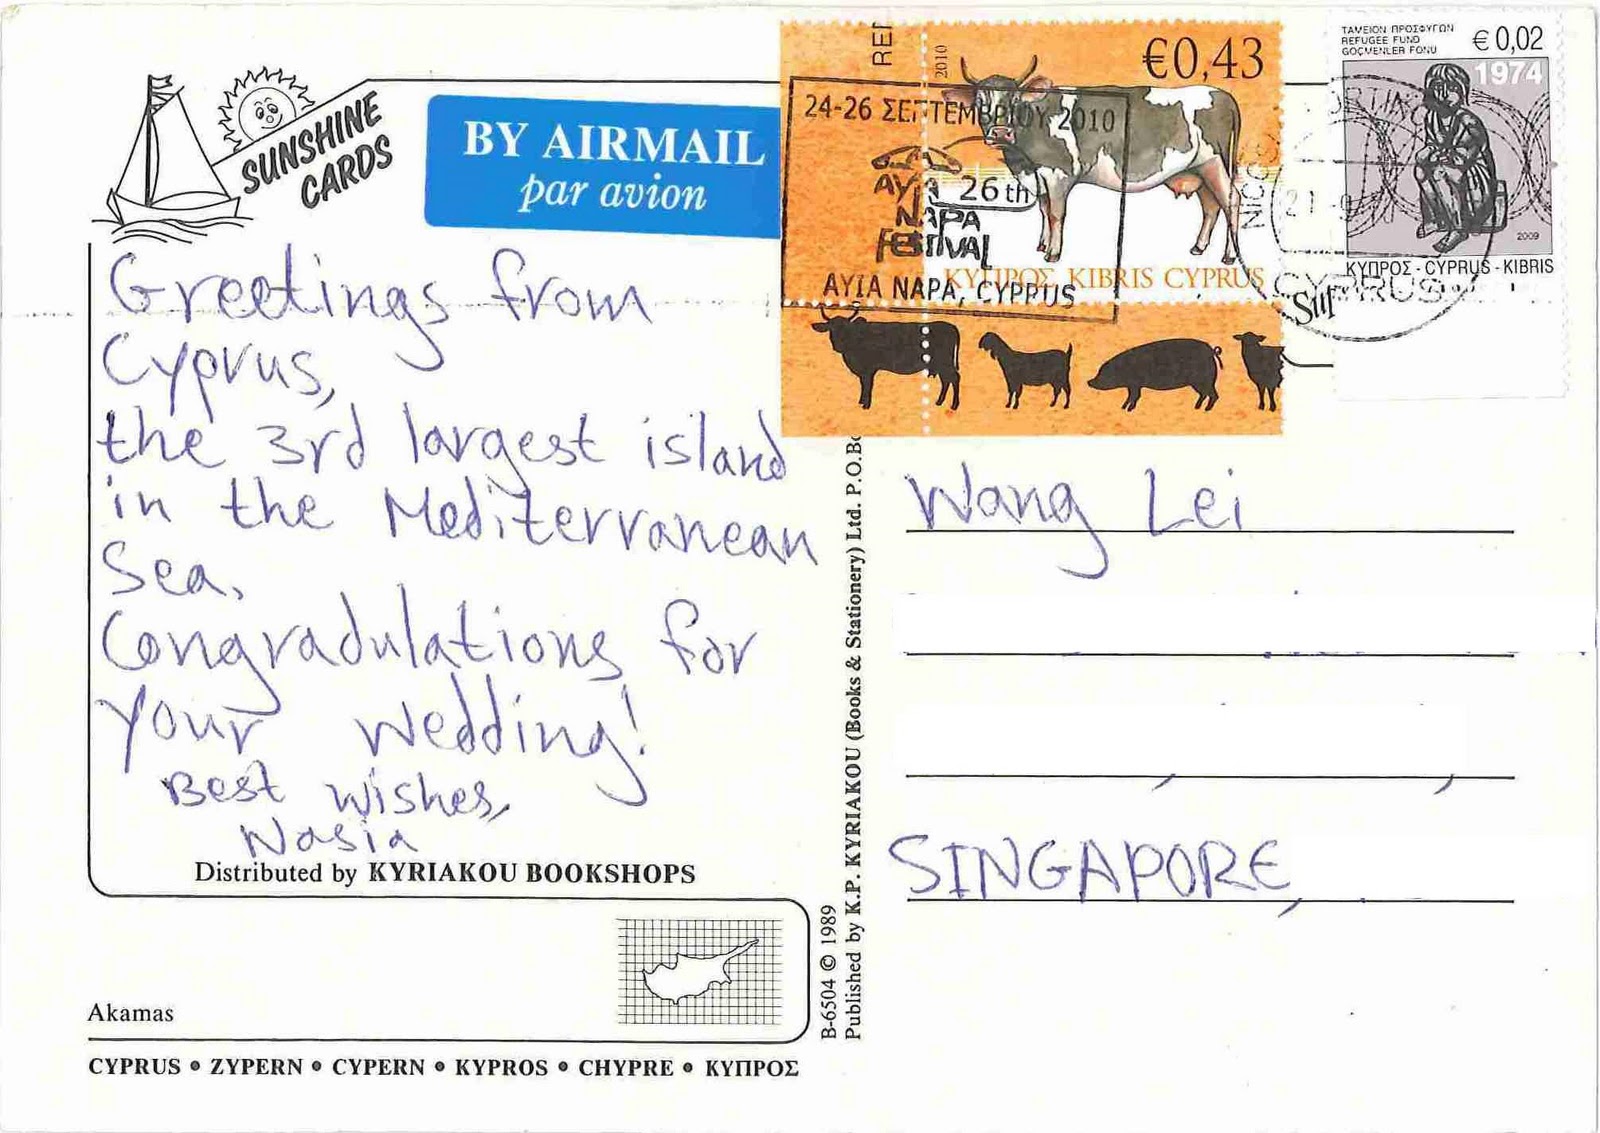 SUNSHINE
CARDS
BY AIRMAIL
par avion
2010
€0,43
24-26 ΣΕΠΤΕΜΒΡΙΟΥ 2010
26th
ΑΥΙΑ
NAPA
FESTIVAL
AYIA NAPA, CYPRUS
ΚΥΠΡΟΣ KIBRIS CYPRUS
ΤΑΜΕΙΟΝ ΠΡΟΣΦΥΓΩΝ
REFUGEE FUND
GÖÇMENLER FONU
€ 0,02
1974
2009
ΚΥΠΡΟΣ - CYPRUS - KIBRIS
CYPRUS
Greetings from
Cyprus,
the 3rd largest island
in the Mediterranean
Sea.
Congradulations for
your wedding!
Best wishes,
Nasia
Distributed by KYRIAKOU BOOKSHOPS
Akamas
CYPRUS • ZYPERN • CYPERN • KYPROS • CHYPRE • ΚΥΠΡΟΣ
B-6504 © 1989
Published by K.P. KYRIAKOU (Books & Stationery) Ltd. P.O.Bo
Wang Lei
SINGAPORE,